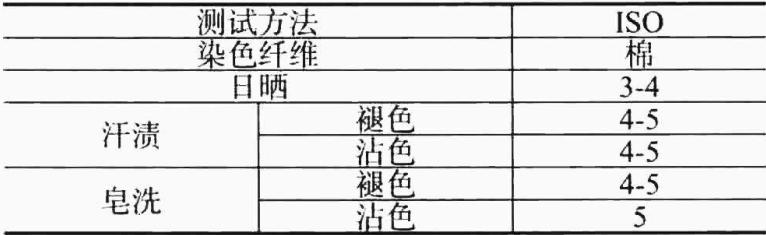 测试方法 ISO
染色纤维 棉
日晒 3-4
汗渍 褪色 4-5
沾色 4-5
皂洗 褪色 4-5
沾色 5